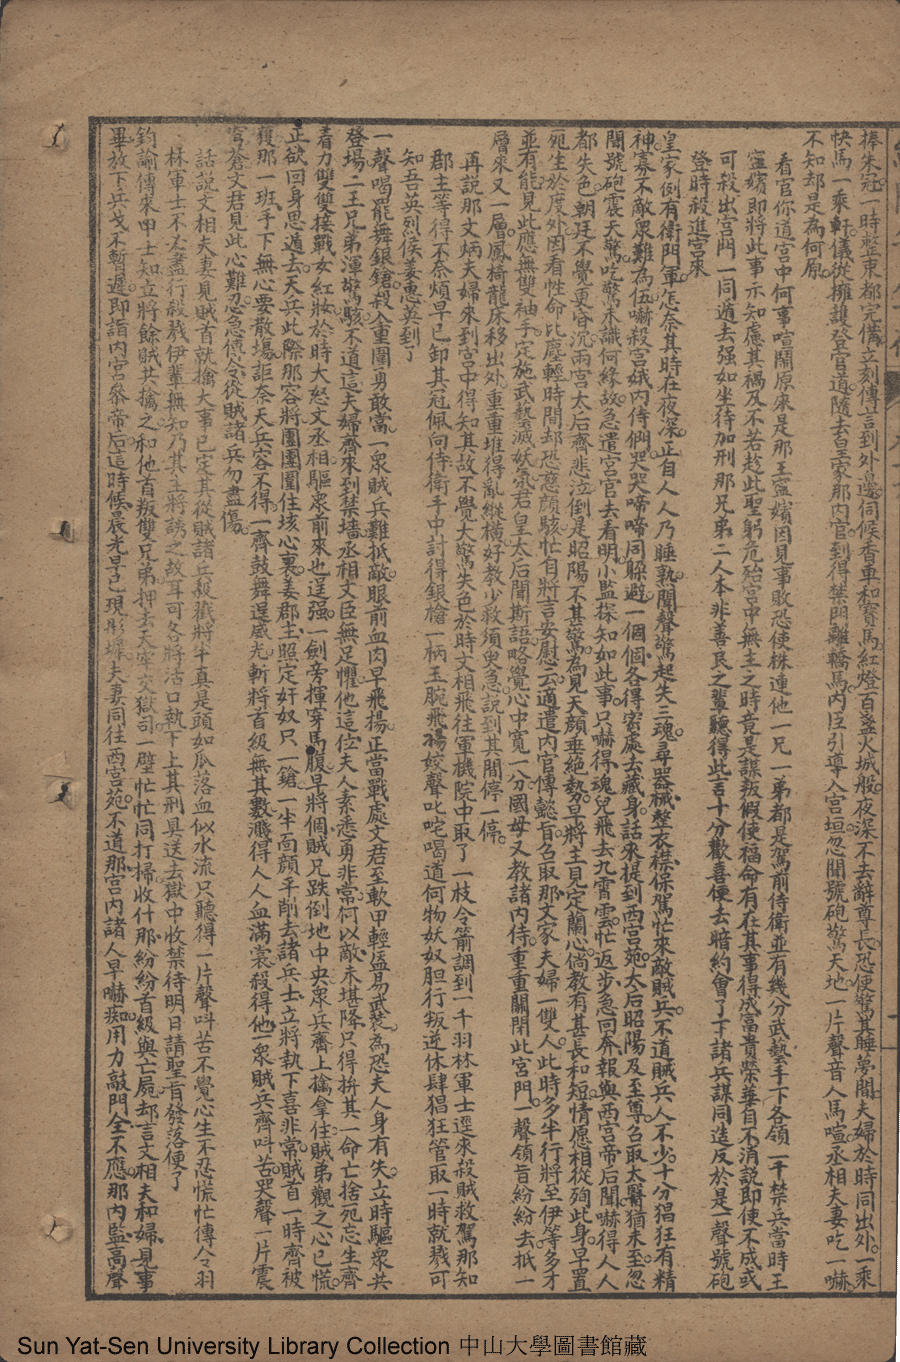 捧朱冠一時整束都完備立刻傳言到外邊伺候香車和寶馬紅燈百盞火城般夜深不去辭尊長恐便驚其睡夢閣夫婦於時同出外一乘
快馬一乘軒儀從擁護登官道隨去皇家那內官到得禁門離轎馬內臣引導入宮垣忽聞號砲驚天地一片聲音人馬喧丞相夫妻吃一嚇
不知却是為何原
看官你道宮中何事喧鬧原來是那王寍嬪因見事敗恐使株連他一兄一弟都是駕前侍衛並有幾分武藝手下各領一千禁兵當時王
寍嬪即將此事示知慮其禍及不若趁此聖躬危殆宮中無主之時竟是謀叛假使福命有在其事得成富貴榮華自不消說即使不成或
可殺出宮門一同遁去强如坐待加刑那兄弟二人本非善良之輩聽得此言十分歡喜便去暗約會了下諸兵謀同造反於是一聲號砲
登時殺進宮來
皇家例有衛門軍怎奈其時在夜深正自人人乃睡熟聞聲驚起失三魂尋器械整衣襟保駕忙來敵賊兵不道賊兵人不少十分猖狂有精
神寡不敵眾難為伍嚇殺宮娥內侍們哭哭啼啼同躲避一個個各得密處去藏身話來提到西宮苑太后昭陽及至尊召取太醫猶未至忽
聞號砲震天驚吃驚未識何緣故急遣宮官去看明小監探知如此事只嚇得魂兒飛去九霄雲忙返步急回奔報與西宮帝后聞嚇得人人
都失色朝廷不覺更昏沉兩宮太后齊悲泣倒是昭陽不甚驚為見天顏垂絕勢早將主見定蘭心倘教有甚長和短情愿相從殉此身早置
死生於度外因看性命比塵輕時間却恐慈顏駭忙自將言安慰云適遣內官傳懿旨名取那文家夫婦一雙人此時多半行將至伊等多才
並有能見此應無雙袖手定施武藝滅妖氛君皇太后聞斯語略覺心中寬一分國母又教諸內侍重重關閉此宮門一聲領旨紛紛去抵一
層來又一層鳳椅龍床移出外重重堆得亂縱橫好教少救須臾急說到其間停一停
再說那文炳夫婦來到宮中得知其故不覺大驚失色於時文相飛往軍機院中取了一枝令箭調到一千羽林軍士逕來殺賊救駕那知
郡主等得不奈煩早已卸其冠佩向侍衛手中討得銀槍一柄玉腕飛揚姣聲叱咤喝道何物妖奴胆行叛逆休肆猖狂管取一時就戮可
知吾英烈侯夔惠英到了
一聲喝罷舞銀鎗殺入重圍勇敢當一衆賊兵難抵敵眼前血肉早飛揚正當戰處文君至軟甲輕盔易武裝為恐夫人身有失立時驅衆共
登場二王兄弟渾驚駭不道這夫婦齊來到禁墻丞相文臣無足懼他這位夫人素悉勇非常何以敵未堪降只得拚其一命亡捨死忘生齊
着力雙雙接戰女紅妝於時大怒文丞相驅衆前來也逞强一劍旁揮穿馬腹早將個賊兄跌倒地中央衆兵齊上擒拿住賊弟觀之心已慌
正欲回身思遁去天兵此際那容將團團圍住垓心裏姜郡主照定奸奴只一鎗一半面顏平削去諸兵士立將執下喜非常賊首一時齊被
獲那一班手下無心要散場詎奈天兵容不得一齊鼓舞逞威光斬將首級無其數濺得人人血滿裳殺得他一衆賊兵齊叫苦哭聲一片震
穹蒼文君見此心難忍急傳令從賊諸兵勿盡傷
話說文相夫妻見賊首就擒大事已定其從賊諸兵殺戳將半真是頭如瓜落血似水流只聽得一片聲叫苦不覺心生不忍慌忙傳令羽
林軍士不必盡行殺戮伊輩無知乃其主將誘之故耳可各將活口執下上其刑具送去獄中收禁待明日請聖旨發落便了
鈞諭傳來甲士知立將餘賊共擒之和他首叛雙兄弟押去天牢交獄司一壁忙忙同打掃收什那紛紛首級與亡屍却言文相夫和婦見事
畢放下兵戈不暫遲即詣內宮叅帝后這時候晨光早已現彤墀夫妻同往西宮苑不道那宮內諸人早嚇痴用力敲門全不應那內監高聲
Sun Yat-Sen University Library Collection 中山大學圖書館藏